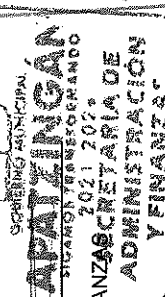 GOBIERNO MUNICIPAL
APATZINGÁN
SIGAMOS TRANSFORMANDO
2021 202
SECRETARIA DE
ADMINISTRACIÓN
Y FINANZAS
ANZAS